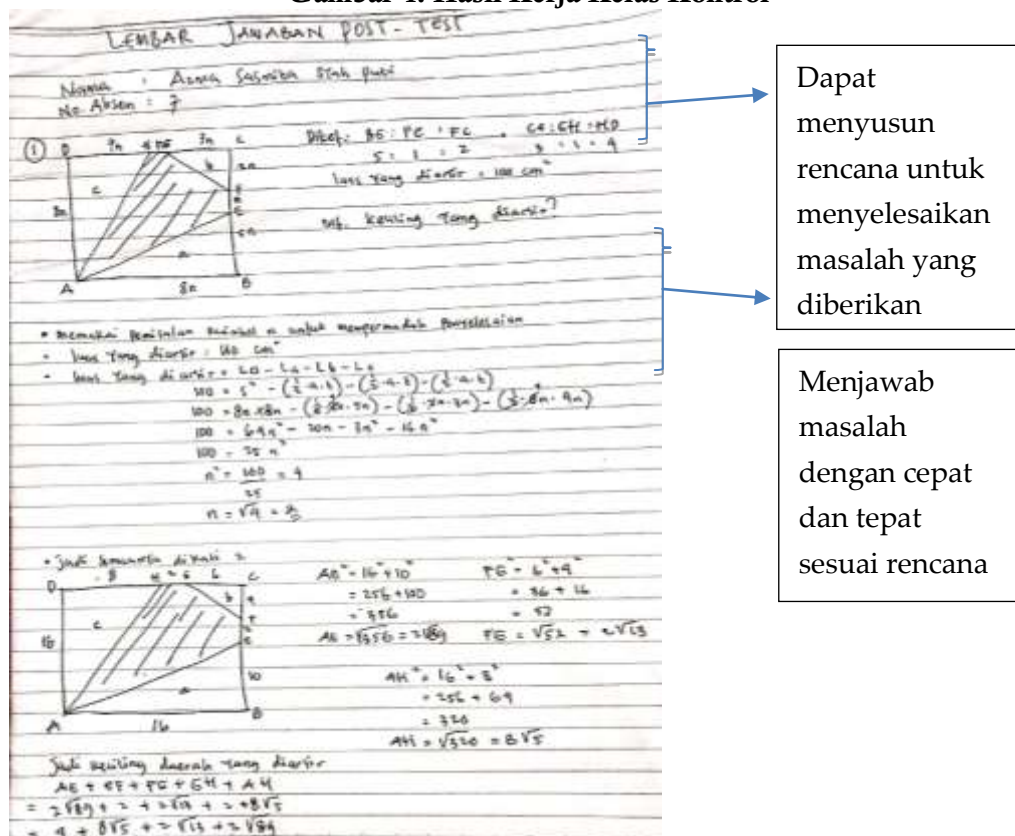 Gambar 4. Hasil Kerja Kelas Kontrol
LEMBAR JAWABAN POST-TEST
Nama :
No Absen : 7
1 D 7n 3n C
Diket. BE : FE : FC , CG : GH : HD
5 : 1 : 2 3 : 1 : 4
luas yang diarsir = 100 cm²
Dit. keliling yang diarsir?
b 2n
c
8n
5n
a
A 8n B
• memakai pemisalan n untuk mempermudah penyelesaian
• luas yang diarsir : 100 cm²
• luas yang diarsir = L□ - La - Lb - Lc
100 = s² - (½·a·t) - (½·a·t) - (½·a·t)
100 = 8n·8n - (½·8n·5n) - (½·2n·3n) - (½·8n·4n)
100 = 64n² - 20n - 3n² - 16n²
100 = 25 n²
n² = 100 = 4
25
n = √4 = 2
• Jadi semuanya dikali 2
D 8 H 2 G 6 C
b 4
F
c
16 E
10
a
A 16 B
AE² = 16² + 10²
= 256 + 100
= 356
AE = √356 = 2√89
FG² = 6² + 4²
= 36 + 16
= 52
FG = √52 = 2√13
AH² = 16² + 8²
= 256 + 64
= 320
AH = √320 = 8√5
Jadi keliling daerah yang diarsir
AE + EF + FG + GH + AH
= 2√89 + 2 + 2√13 + 2 + 8√5
= 4 + 8√5 + 2√13 + 2√89
Dapat
menyusun
rencana untuk
menyelesaikan
masalah yang
diberikan
Menjawab
masalah
dengan cepat
dan tepat
sesuai rencana